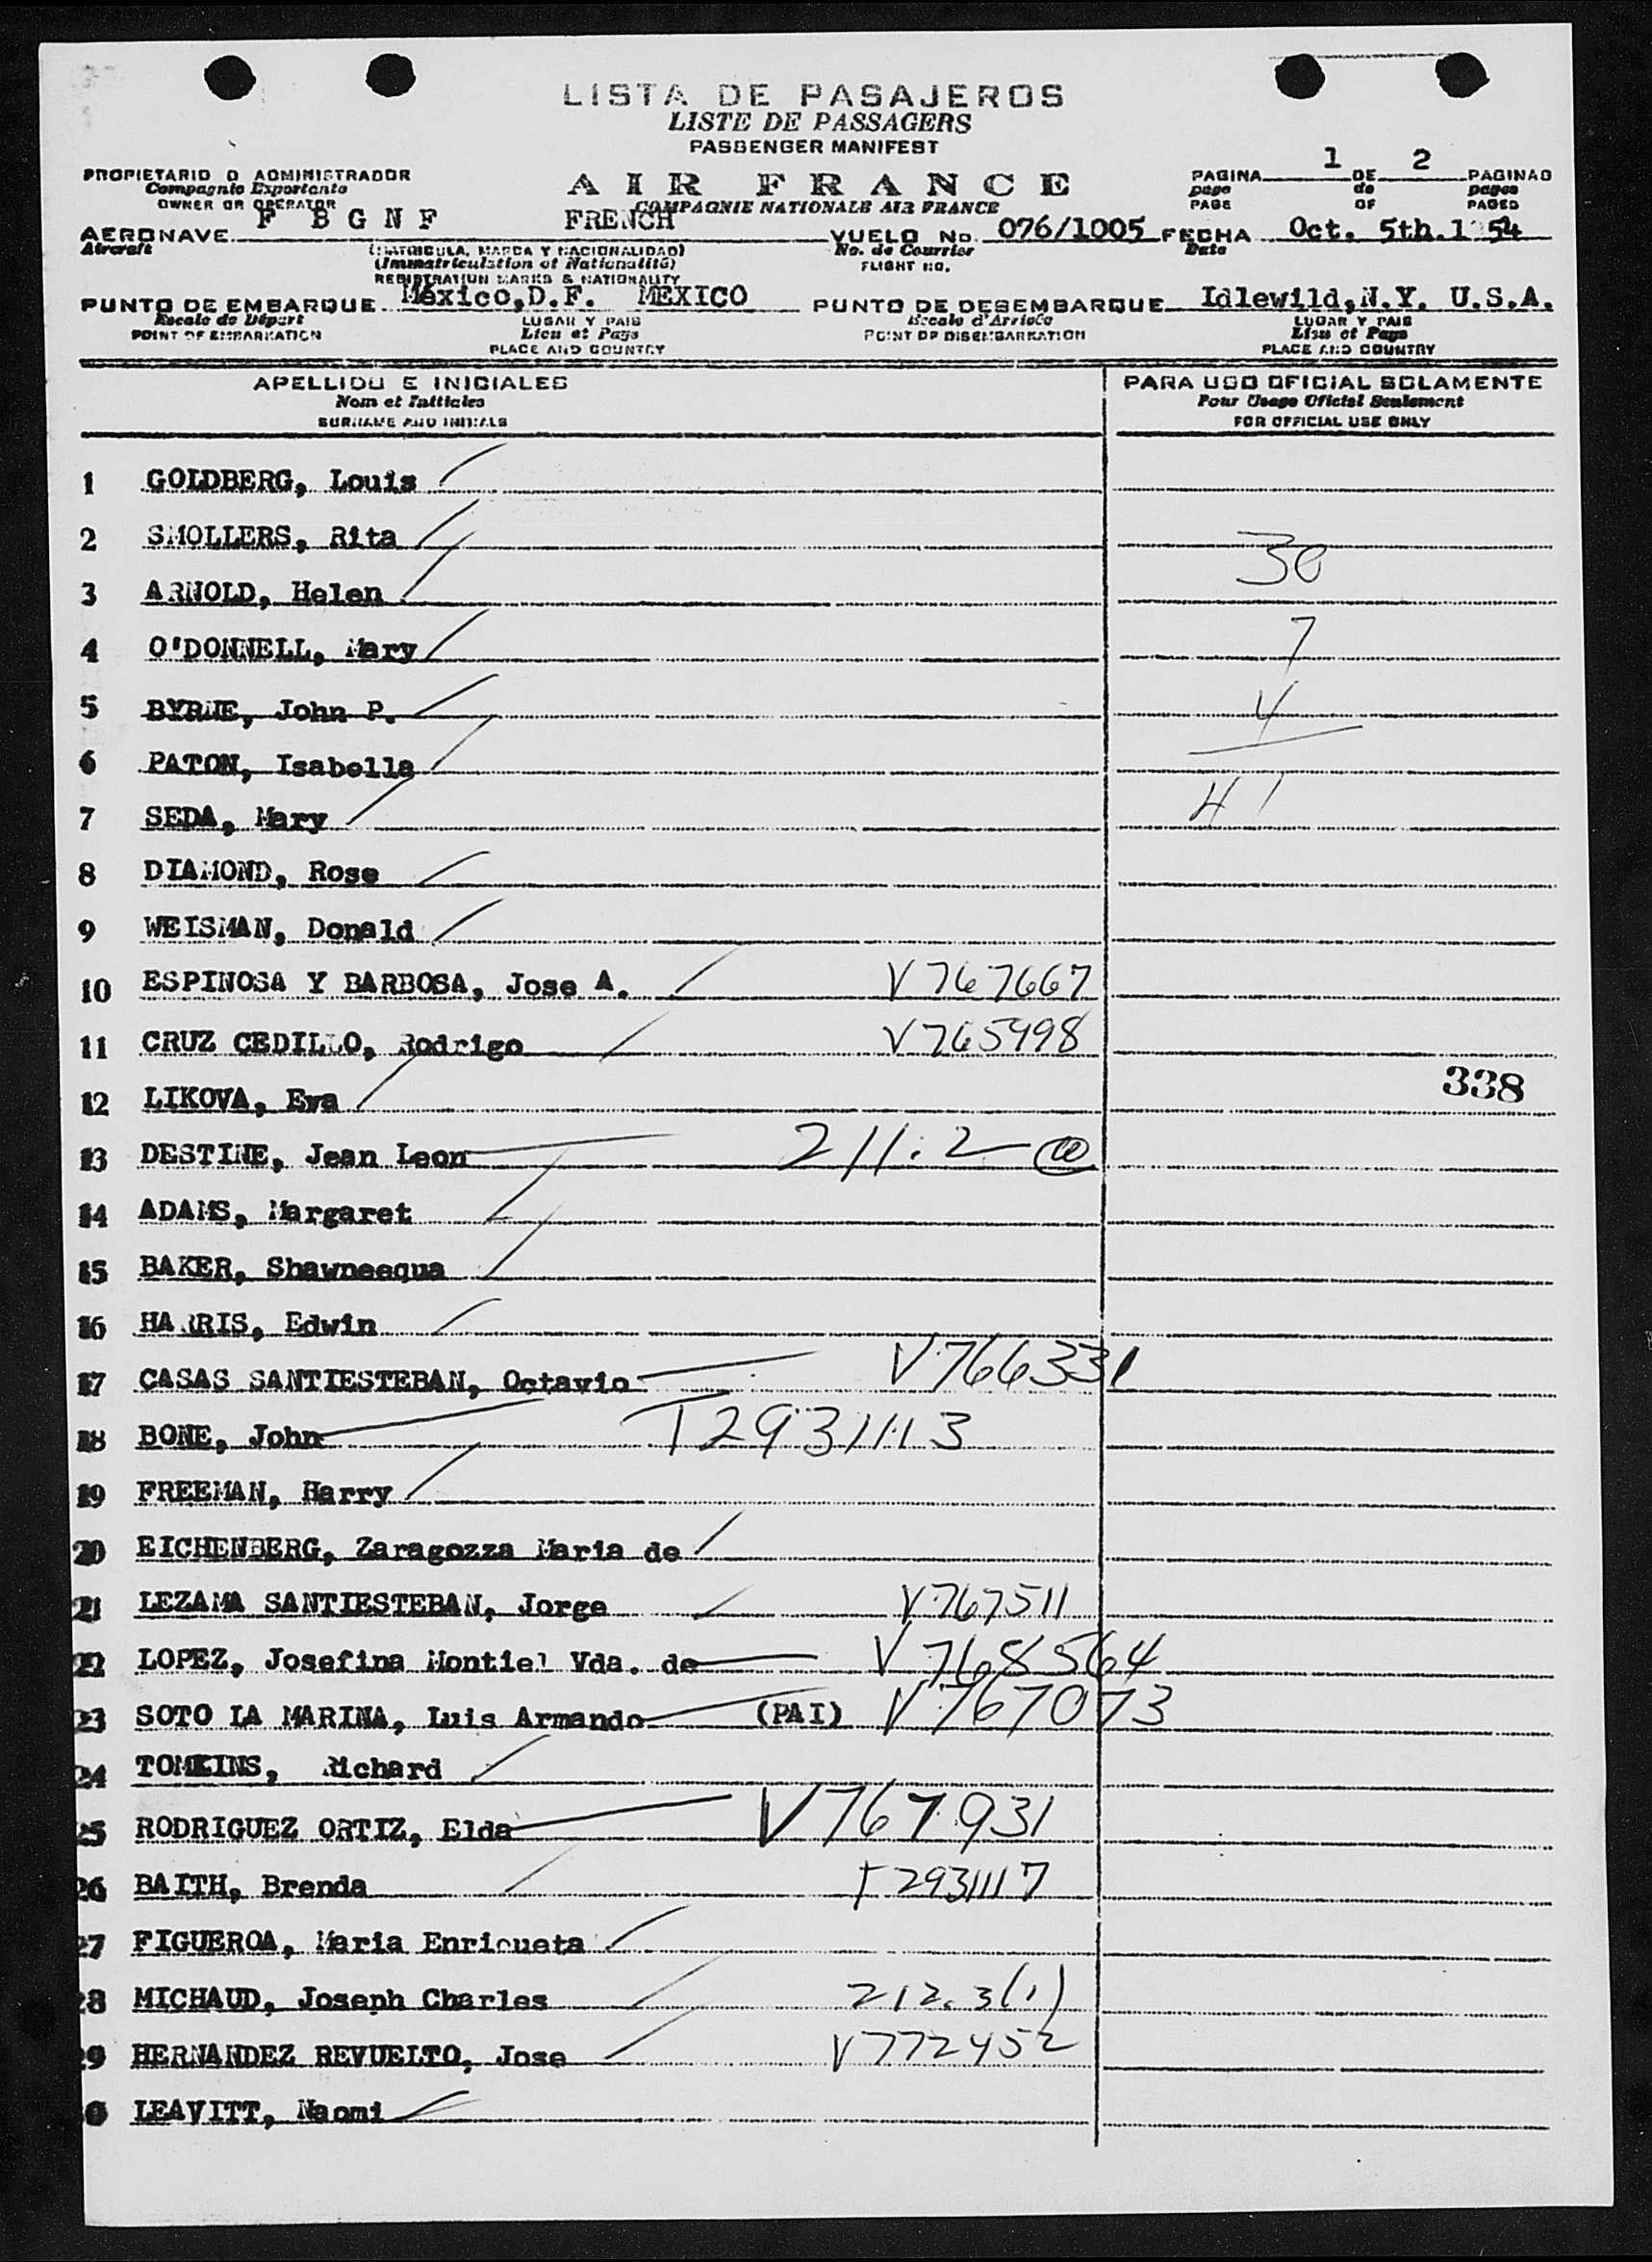 LISTA DE PASAJEROS
LISTE DE PASSAGERS
PASSENGER MANIFEST
PROPIETARIO O ADMINISTRADOR
Compagnie Exportante
OWNER OR OPERATOR
AIR FRANCE
COMPAGNIE NATIONALE AIR FRANCE
PAGINA 1 DE 2 PAGINAS
page de pages
PAGE OF PAGES
AERONAVE F B G N F FRENCH VUELO No. 076/1005 FECHA Oct. 5th.1 54
Aircraft (MATRICULA, MARCA Y NACIONALIDAD) No. de Courrier Date
(Immatriculation et Nationalité) FLIGHT NO.
REGISTRATION MARKS & NATIONALITY
PUNTO DE EMBARQUE México,D.F. MEXICO PUNTO DE DESEMBARQUE Idlewild,N.Y. U.S.A.
Escale de Départ LUGAR Y PAIS Escale d'Arrivée LUGAR Y PAIS
POINT OF EMBARKATION Lieu et Pays POINT OF DISEMBARKATION Lieu et Pays
PLACE AND COUNTRY PLACE AND COUNTRY
APELLIDO E INICIALES PARA USO OFICIAL SOLAMENTE
Nom et Initiales Pour Usage Oficiel Seulement
SURNAME AND INITIALS FOR OFFICIAL USE ONLY
1 GOLDBERG, Louis
2 SMOLLERS, Rita 30
3 ARNOLD, Helen
4 O'DONNELL, Mary 7
5 BYRNE, John P. 4
6 PATON, Isabella
7 SEDA, Mary 41
8 DIAMOND, Rose
9 WEISMAN, Donald
10 ESPINOSA Y BARBOSA, Jose A. V767667
11 CRUZ CEDILLO, Rodrigo V765998
12 LIKOVA, Eva 338
13 DESTINE, Jean Leon 211.2
14 ADAMS, Margaret
15 BAKER, Shawneequa
16 HARRIS, Edwin
17 CASAS SANTIESTEBAN, Octavio V766331
18 BONE, John T2931113
19 FREEMAN, Harry
20 EICHENBERG, Zaragozza Maria de
21 LEZAMA SANTIESTEBAN, Jorge V767511
22 LOPEZ, Josefina Montiel Vda. de V768564
23 SOTO LA MARINA, Luis Armando (PAI) V767073
24 TOMKINS, Richard
25 RODRIGUEZ ORTIZ, Elda V767931
26 BAITH, Brenda T2931117
27 FIGUEROA, Maria Enriqueta
28 MICHAUD, Joseph Charles 212.3(1)
29 HERNANDEZ REVUELTO, Jose V772452
0 LEAVITT, Naomi